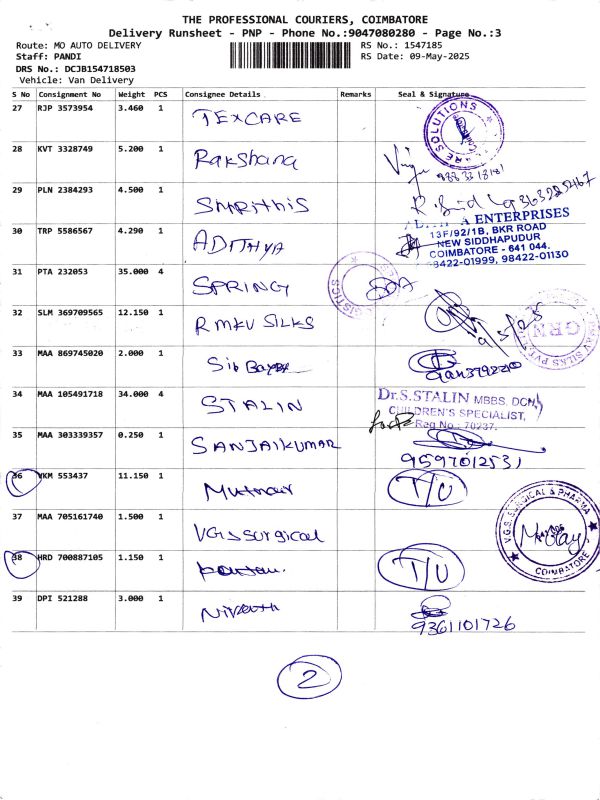 THE PROFESSIONAL COURIERS, COIMBATORE
Delivery Runsheet - PNP - Phone No.:9047080280 - Page No.:3
Route: MO AUTO DELIVERY RS No.: 1547185
Staff: PANDI RS Date: 09-May-2025
DRS No.: DCJB154718503
Vehicle: Van Delivery
S No Consignment No Weight PCS Consignee Details Remarks Seal & Signature
27 RJP 3573954 3.460 1 TEXCARE SOLUTIONS
28 KVT 3328749 5.200 1 Rakshana
29 PLN 2384293 4.500 1 Smrithis
30 TRP 5586567 4.290 1 ADITHYA
ENTERPRISES
13F/92/1B, BKR ROAD
NEW SIDDHAPUDUR
COIMBATORE - 641 044.
98422-01999, 98422-01130
31 PTA 232053 35.000 4 SPRING
32 SLM 369709565 12.150 1 RMKV SILKS GRN
33 MAA 869745020 2.000 1
34 MAA 105491718 34.000 4 STALIN
Dr.S.STALIN MBBS, DCH,
CHILDREN'S SPECIALIST,
Reg No.: 70237.
35 MAA 303339357 0.250 1 SANJAIKUMAR
9597012531
36 VKM 553437 11.150 1 T/U
37 MAA 705161740 1.500 1 VGS Surgical V.G.S. SURGICAL & PHARMA COIMBATORE
38 HRD 700887105 1.150 1 T/U
39 DPI 521288 3.000 1
9361101726
2